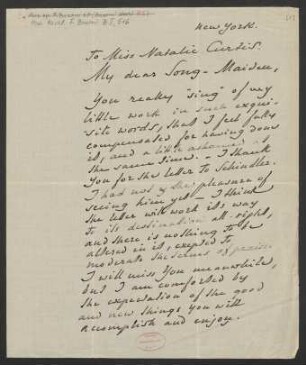 New York.
To Miss Natalie Curtis.
My dear Song-Maiden,
You really "sing" of my
little work in such exqui-
site words, that I feel fully
compensated for having done
it, and a little ashamed at
the same time. - I thank
you for the letter to Schindler.
I had not yet the pleasure of
seeing him yet - I think
the letter will work its way
to its destination all right,
and there is nothing to be
altered in it, except to
moderate the terms of praise.
I will miss You meanwhile,
but I am comforted by
the expectation of the good
and new things you will
accomplish and enjoy.